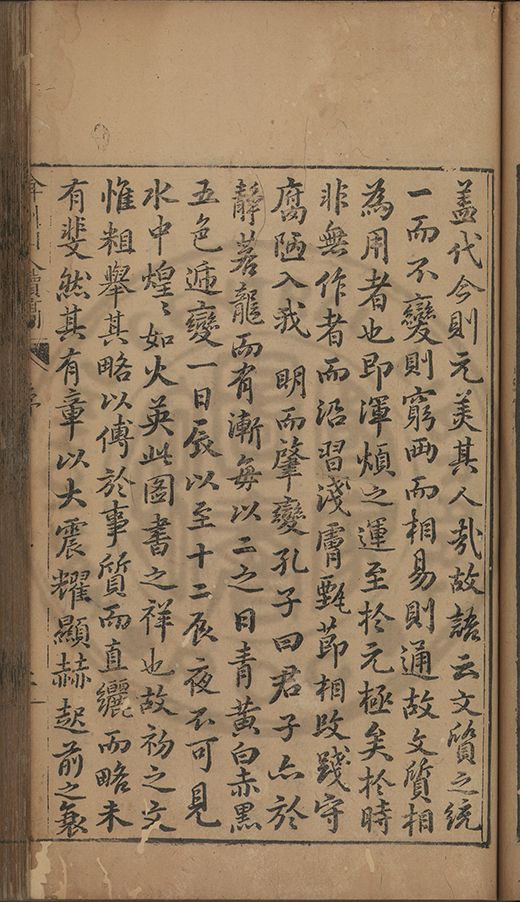 盖代今則元美其人哉故語云文質之統
一而不變則窮兩而相易則通故文質相
為用者也即渾煩之運至於元極矣於時
非無作者而沿習淺膚甄莭相攺踐守
腐陋入我　明而肇變孔子曰君子亦於
靜若龍而有漸每以二之日青黃白赤黑
五色遞變一日辰以至十二辰夜不可見
水中煌〻如火英此圖書之祥也故初之文
惟粗舉其略以傅於事質而直纚而略未
有斐然其有章以大震耀顯赫起前之衰
序